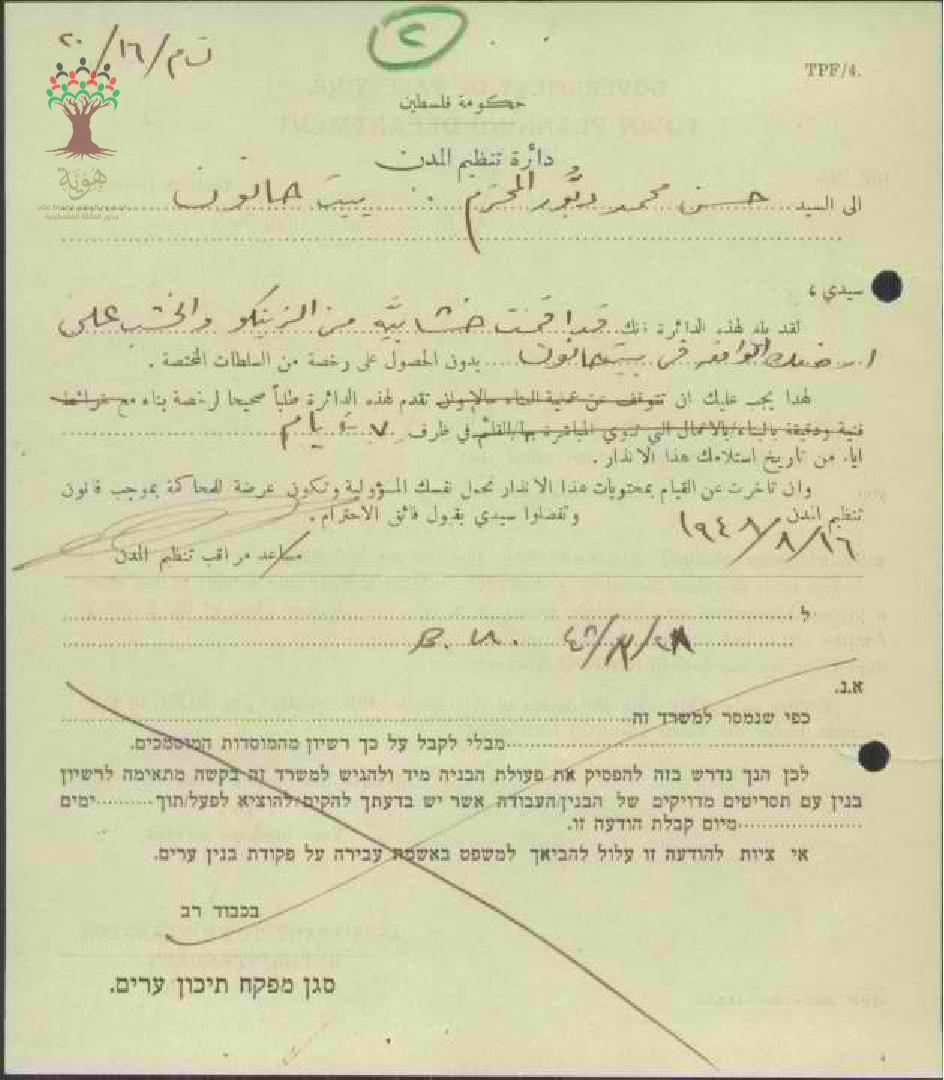 ت م/١٦/٢٠
٢
TPF/4.
حكومة فلسطين
دائرة تنظيم المدن
هوية
جذور العائلة الفلسطينية
الى السيد حسن محمد دبور المحترم . بيت حانون
سيدي ،
لقد بلغ لهذه الدائرة انك قد اقمت خشابيّه من الزينكو والخشب على
ارضك الواقعه في بيت حانون بدون الحصول على رخصة من السلطات المختصة .
لهذا يجب عليك ان تتوقف عن عملية البناء حالا وان تقدم لهذه الدائرة طلباً صحيحا لرخصة بناء مع خرائط
فنية ودقيقة بالبناء/بالاعمال التي تنوي المباشرة بها/القائم في ظرف ٧ ايام
ايام من تاريخ استلامك هذا الانذار .
وان تاخرت عن القيام بمحتويات هذا الانذار تحمل نفسك المسؤولية وتكون عرضة للمحاكمة بموجب قانون
تنظيم المدن وتفضلوا سيدي بقبول فائق الاحترام .
مساعد مراقب تنظيم المدن
ل
א.נ.
כפי שנמסר למשרד זה
מבלי לקבל על כך רשיון מהמוסדות המוסמכים.
לכן הנך נדרש בזה להפסיק את פעולת הבניה מיד ולהגיש למשרד זה בקשה מתאימה לרשיון
בנין עם תסריטים מדויקים של הבנין/העבודה אשר יש בדעתך להקים/להוציא לפעל/תוך ימים
מיום קבלת הודעה זו.
אי ציות להודעה זו עלול להביאך למשפט באשמת עבירה על פקודת בנין ערים.
בכבוד רב
סגן מפקח תיכון ערים.